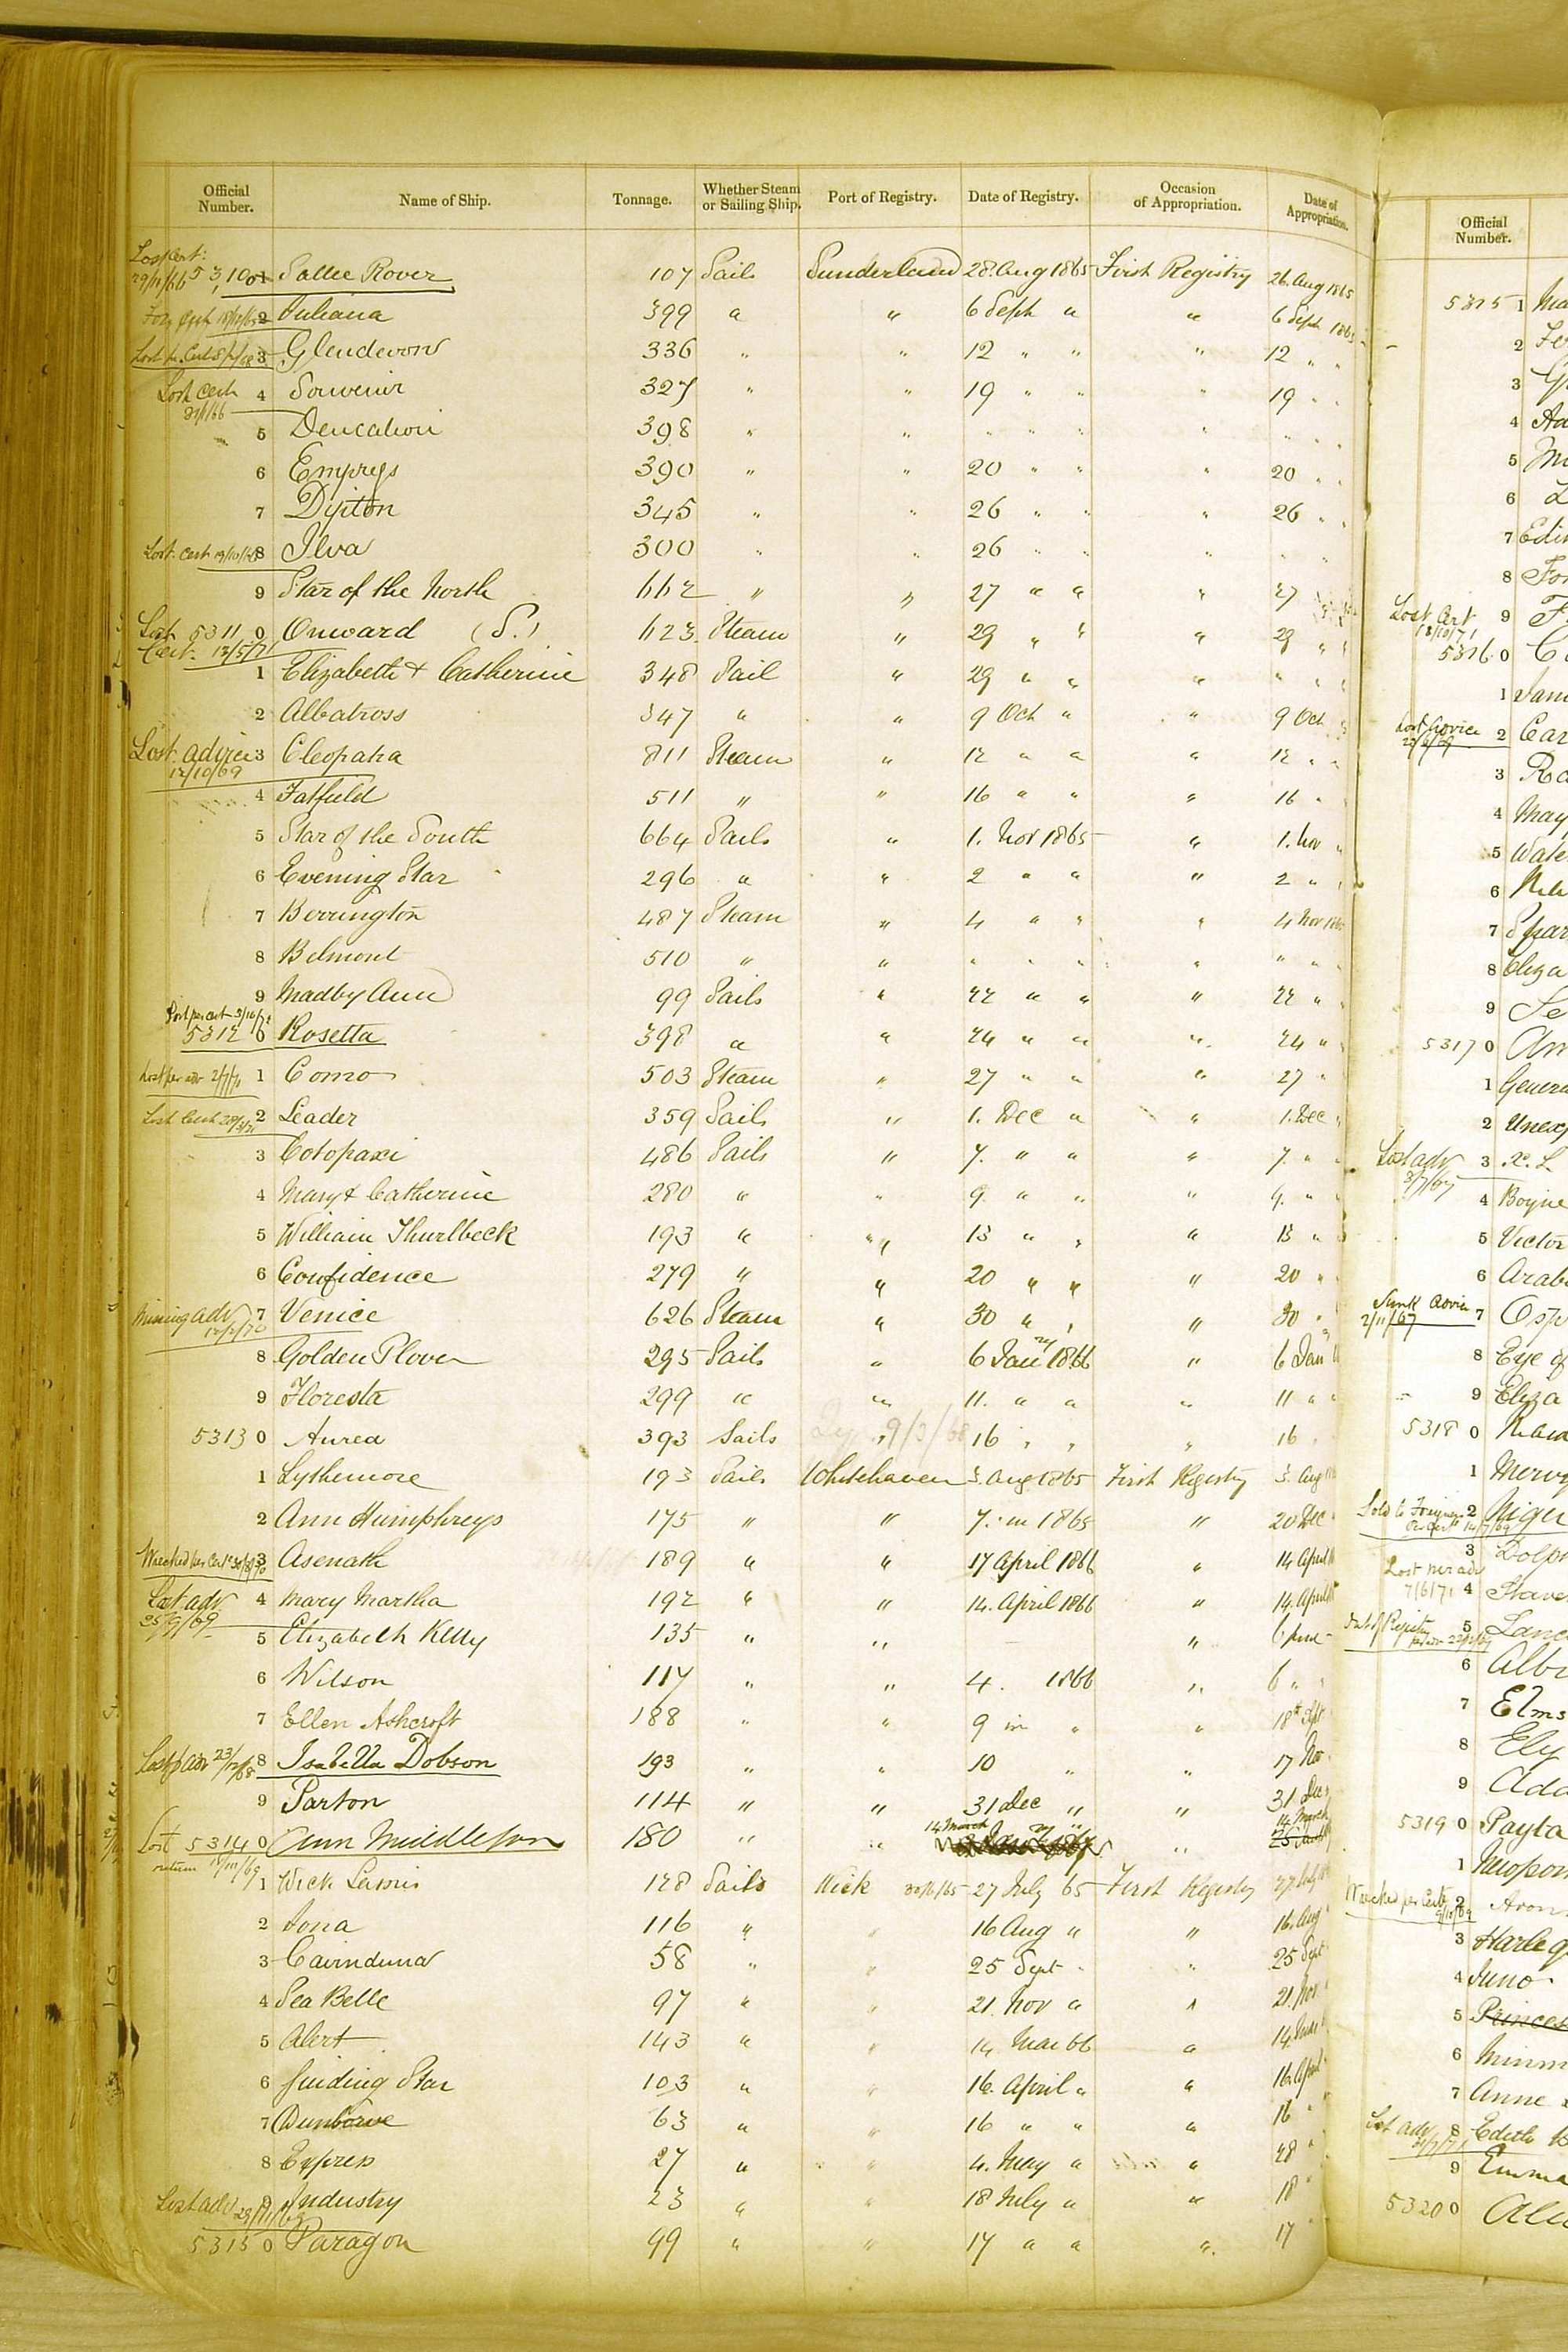 Official Number. Name of Ship. Tonnage. Whether Steam or Sailing Ship. Port of Registry. Date of Registry. Occasion of Appropriation. Date of Appropriation.
Lost Cert: 29/11/66 53,101 Sallee Rover 107 Sails Sunderland 28. Aug 1865 First Registry 26. Aug 1865
2 Juliana 399 " " 6 Sept " " 6 Sept 1865
3 Glendevon 336 " " 12 " " " 12 " "
Lost Cert 4 Souvenir 327 " " 19 " " " 19 " "
5 Deucalion 398 " " " " " " " " "
6 Empress 390 " " 20 " " " 20 " "
7 Dipton 345 " " 26 " " " 26 " "
Lost. Cert 8 Ilva 300 " " 26 " " " " "
9 Star of the North 662 " " 27 " " " 27
Lost Cert. 12/5/71 5311 0 Onward (S.) 623. Steam " 29 " " " 29 " "
1 Elizabeth & Catherine 348 Sail " 29 " " " " " "
2 Albatross 347 " " 9 Oct " " 9 Oct "
Lost. advice 12/10/69 3 Cleopatra 811 Steam " 12 " " " 12 " "
4 Fatfield 511 " " 16 " " " 16 "
5 Star of the South 664 Sails " 1. Nov 1865 " 1. Nov "
6 Evening Star 296 " " 2 " " " 2 " "
7 Berrington 487 Steam " 4 " " " 4 Nov 1865
8 Belmont 510 " " " " " " " " "
9 Madby Ann 99 Sails " 22 " " " 22 " "
Lost per cert 5312 0 Rosetta 398 " " 24 " " " 24 "
Lost per adv 2/7/71 1 Como 503 Steam " 27 " " " 27 "
Lost Cert 2 Leader 359 Sails " 1. Dec " " 1. Dec "
3 Cotopaxi 486 Sails " 7. " " " 7. " "
4 Mary & Catherine 280 " " 9 " " " 9. " "
5 William Thurlbeck 193 " " 13 " " " 13 " "
6 Confidence 279 " " 20 " " " 20 "
Missing adv 7 Venice 626 Steam " 30 " " " 30 "
8 Golden Plover 295 Sails " 6 Jany 1866 " 6 Jan
9 Floresta 299 " " 11. " " " 11 " "
5313 0 Aurea 393 Sails " 16 " " " 16 "
1 Lythemore 193 Sails Whitehaven 3. Aug 1865 First Registry 3. Aug
2 Ann Humphreys 175 " " 7. in 1865 " 20 Dec
Wrecked per Cert 30/8/70 3 Asenath 189 " " 17 April 1866 " 14 April
Lost adv. 4 Mary Martha 192 " " 14. April 1866 " 14. April
5 Elizabeth Kelly 135 " " " 6 June
6 Wilson 117 " " 4. 1866 " 6 "
7 Ellen Ashcroft 188 " " 9 in " " 18th Sept
8 Isabella Dobson 193 " " 10 " " 17 Nov
9 Parton 114 " " 31 Dec " " 31 Dec
Lost return 5314 0 Ann Middleton 180 " " 14 March " 14 March
1 Wick Lassie 128 Sails Wick 30/6/65 27 July 65 First Registry 27 July
2 Iona 116 " " 16 Aug " " 16. Aug
3 Cairnduna 58 " " 25 Sept " " 25 Sept
4 Sea Belle 97 " " 21. Nov " " 21. Nov.
5 Alert 143 " " 14. Mar 66 "
6 Guiding Star 103 " " 16. April " " 16. April
7 63 " " 16 " " " 16 "
8 Express 27 " " 4. May " " 28 "
Lost adv 9 Industry 23 " " 18 July " " 18 "
5315 0 Paragon 99 " " 17 " " " 17 "
Official Number.
5315 1
2
3
4
5
6
7
8
Lost Cert 9
5316. 0
1
Lost advice 2
3
4
5
6
7
8
9
5317 0
1
2
Lost adv 3 X. L
4 Boyne
5
6
Sunk advice 2/11/67 7
8 Eye of
9 Eliza
5318 0
1
Sold to Foreigners 2
3
Lost per adv 7/6/71 4
5
6
7
8 Ely
9
5319 0
1
Wrecked per Cert 2
3
4 Juno
5
6
7 Anne
Lost adv 8 Edith
9 Emma
5320 0